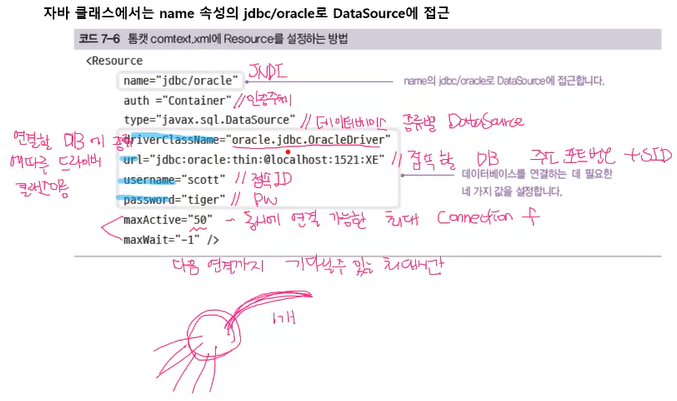 자바 클래스에서는 name 속성의 jdbc/oracle로 DataSource에 접근
코드 7-6 톰캣 comtext.xml에 Resource를 설정하는 방법
<Resource
name="jdbc/oracle" JNDI
name의 jdbc/oracle로 DataSource에 접근합니다.
auth ="Container" //인증주체
type="javax.sql.DataSource" // 데이터베이스 종류별 DataSource
연결할 DB에 종류
driverClassName="oracle.jdbc.OracleDriver"
에따른 드라이버
url="jdbc:oracle:thin:@localhost:1521:XE" // 접속할 DB 주소 포트번호 + SID
클래스이름
username="scott" // 접속ID
데이터베이스를 연결하는 데 필요한
네 가지 값을 설정합니다.
password="tiger" // PW
maxActive="50" ~ 동시에 연결 가능한 최대 Connection 수
maxWait="-1" />
다음 연결까지 기다릴수 있는 최대시간
1개